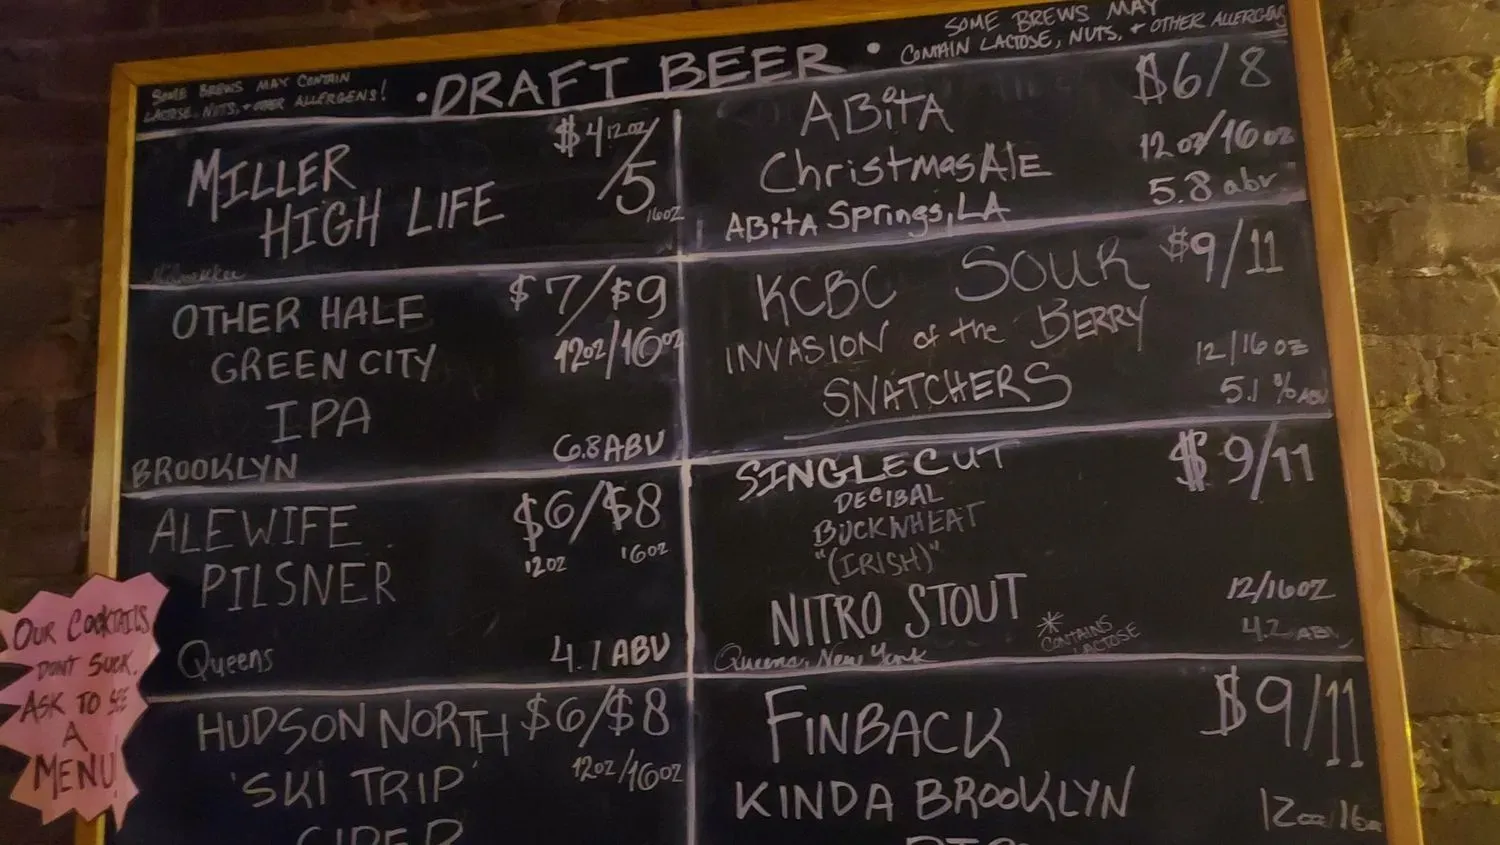 SOME BREWS MAY CONTAIN
LACTOSE, NUTS, + OTHER ALLERGENS!
• DRAFT BEER •
SOME BREWS MAY
CONTAIN LACTOSE, NUTS, + OTHER ALLERGENS
MILLER
HIGH LIFE
$4 12oz/
5 16oz
Milwaukee
OTHER HALF
GREEN CITY
IPA
$7/$9
12oz/16oz
6.8 ABV
BROOKLYN
ALEWIFE
PILSNER
$6/$8
12oz 16oz
Queens
4.7 ABV
HUDSON NORTH
'SKI TRIP'
CIDER
$6/$8
12oz/16oz
ABiTA
Christmas Ale
ABiTA Springs, LA
$6/8
12oz/16oz
5.8 abv
KCBC SOUR
INVASION of the BERRY
SNATCHERS
$9/11
12/16oz
5.1 % ABV
SINGLECUT
DECIBAL
BUCKWHEAT
"(IRISH)"
NITRO STOUT
Queens, New York
* CONTAINS
LACTOSE
$9/11
12/16oz
4.2 ABV
FINBACK
KINDA BROOKLYN
$9/11
12oz/16oz
OUR COCKTAILS
DON'T SUCK.
ASK TO SEE
A
MENU!